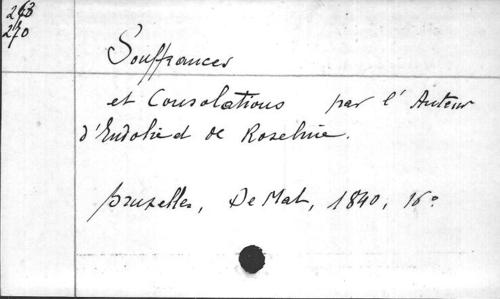 268
270
Souffrances
et Consolations par l'Auteur
d'Eudolie et de Roseline.
Bruxelles, De Mat, 1840, 16°